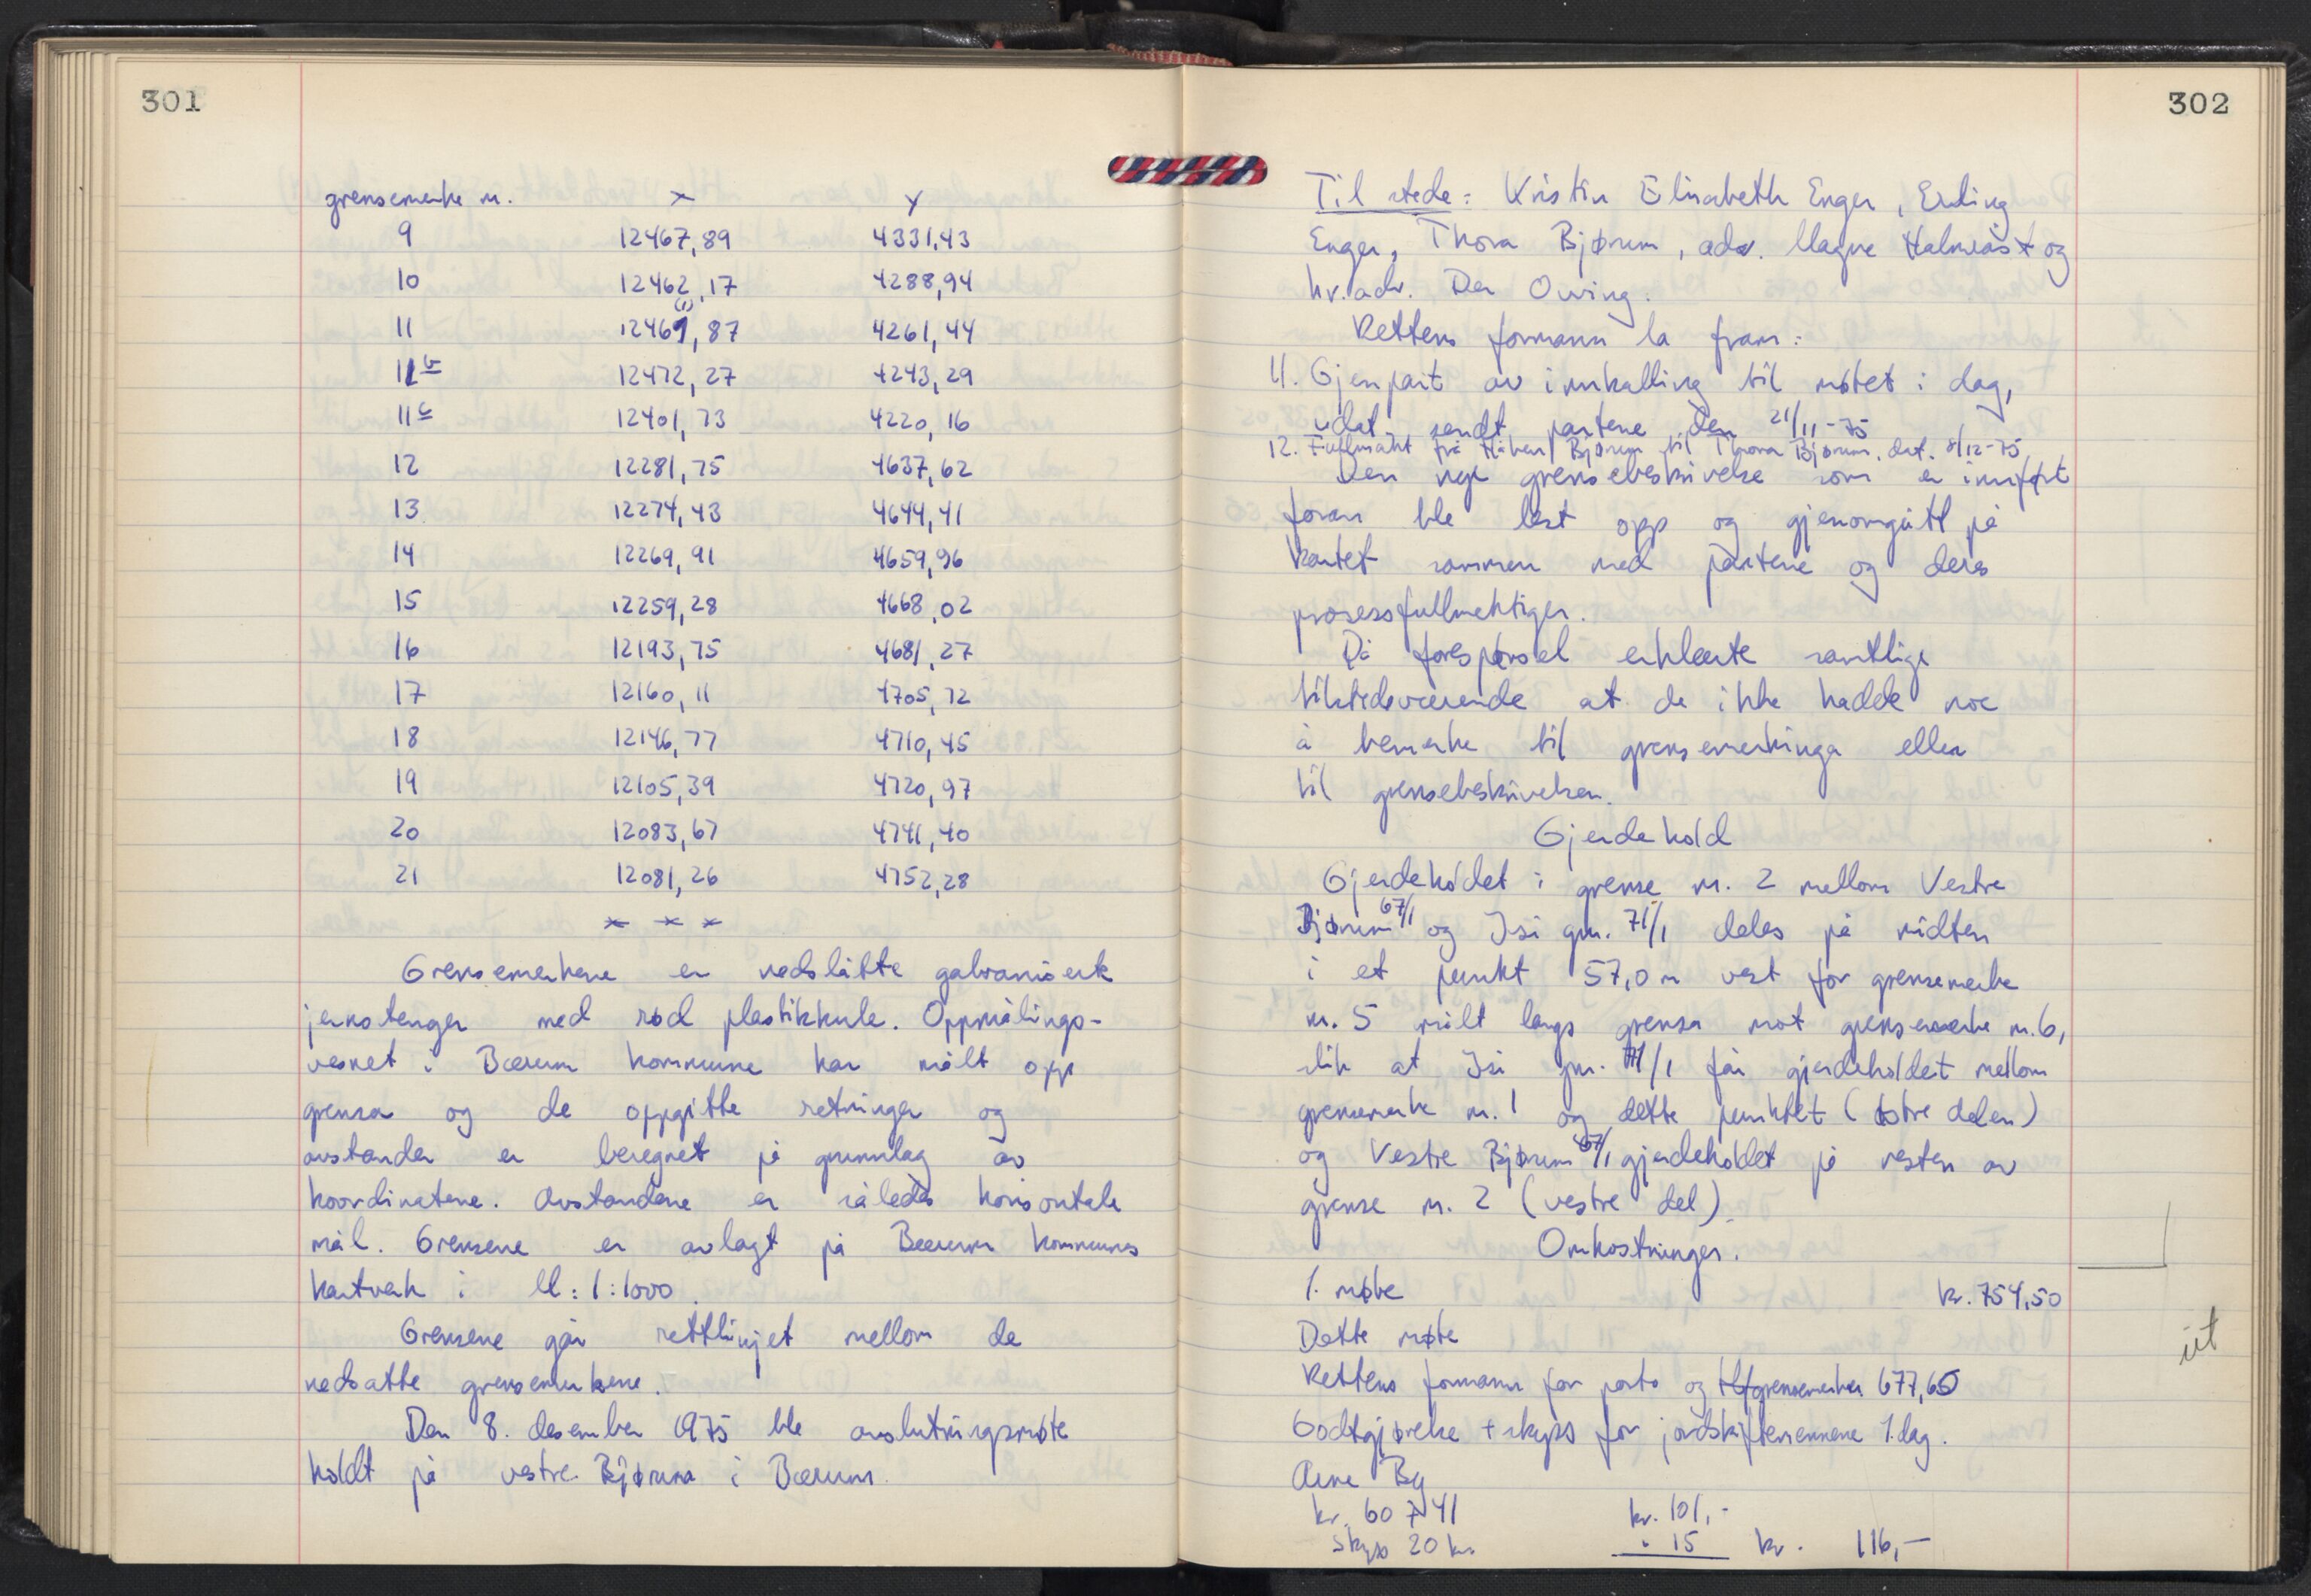 301
grensemerke nr. x y
9 12467,89 4331,43
10 12462,17 4288,94
11 12461,87 4261,44
11b 12472,27 4243,29
11c 12401,73 4220,16
12 12281,75 4637,62
13 12274,43 4644,41
14 12269,91 4659,96
15 12259,28 4668,02
16 12193,75 4681,27
17 12160,11 4705,72
18 12146,77 4710,45
19 12105,39 4720,97
20 12083,67 4741,40
21 12081,26 4752,28
x x x
Grensemerkene er nedslåtte galvaniserte
jernstenger med rød plastikkule. Oppmålings-
vesnet i Bærum kommune har målt opp
grensa og de oppgitte retninger og
avstander er beregnet på grunnlag av
koordinatene. Avstandene er således horisontale
mål. Grensene er avlagt på Bærum kommunes
kartverk i M: 1:1000.
Grensene går rettlinjet mellom de
nedsatte grensemerkene.
Den 8. desember 1975 ble avslutningsmøte
holdt på vestre Bjørum i Bærum.
302
Til stede: Kristin Elisabeth Enger, Erling
Enger, Thora Bjørum, adv. Magne og
h.r.adv. Per Owing.
Rettens formann la fram:
11. Gjenpart av innkalling til møtet i dag,
udat. sendt partene den 21/11-75
12. Fullmakt fra Håkon Bjørum til Thora Bjørum, dat. 8/12-75
Den nye grensebeskrivelse som er innført
foran ble lest opp og gjenomgått på
kartet sammen med partene og deres
prosessfullmektiger.
På forespørsel erklærte samtlige
tilstedeværende at de ikke hadde noe
å bemerke til grensemerkinga eller
til grensebeskrivelsen.
Gjerdehold
Gjerdeholdet i grense nr. 2 mellom Vestre
Bjørum 67/1 og Isi gnr. 71/1 deles på midten
i et punkt 57,0 m vest for grensemerke
nr. 5 målt langs grensa mot grensemerke nr. 6,
slik at Isi gnr. 71/1 får gjerdeholdet mellom
grensemerke nr. 1 og dette punktet (østre delen)
og Vestre Bjørum 67/1 gjerdeholdet på resten av
grense nr. 2 (vestre del).
Omkostninger.
1. møte kr. 754,50
Dette møte
Rettens formann for porto og tlf grensemerker 677,65
Godtgjørelse + skyss for jordskiftemennene 1. dag.
Arne By
kr. 60 + 41 kr. 101,-
skyss 20 km " 15 kr. 116,-
ut